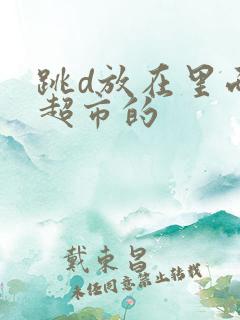 跳d放在里面
超市的
戴東昌
未经同意禁止转载